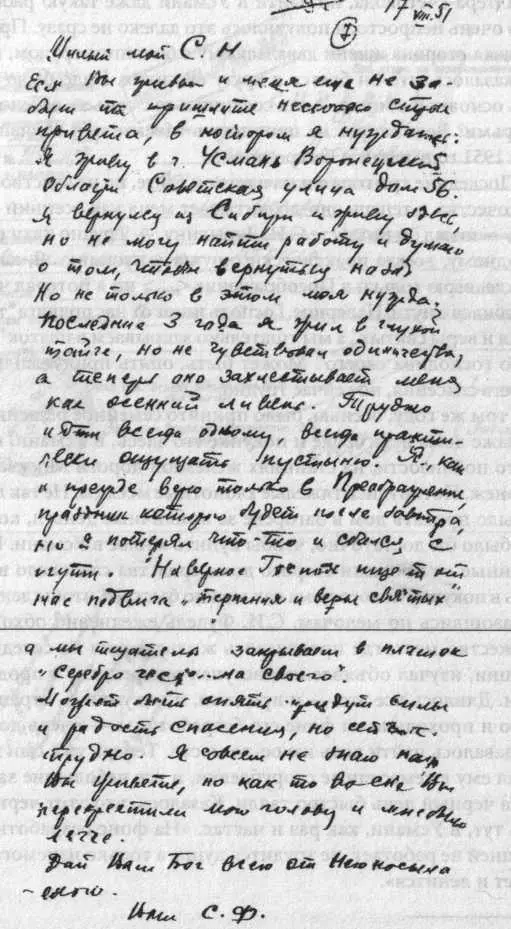 17 VIII. 51
7
Милый мой С. Н.
Если Вы живы и меня еще не за
были то пришлите несколько строк
привета, в котором я нуждаюсь.
Я живу в г. Усмань Воронежской
области Советская улица дом 56
Я вернулся из Сибири и живу здесь,
но не могу найти работу и думаю
о том, чтобы вернуться назад
Но не только в этом моя нужда.
Последние 3 года я жил в глухой
тайге, но не чувствовал одиночества,
а теперь оно захлестывает меня
как осенний ливень. Трудно
идти всегда одному, всегда практи-
чески ощущать пустыню. Я, как
и прежде верю только в Преображение,
праздник которого будет после завтра
но я потерял что-то и сбился с
пути. Наверное Господь ищет от
нас подвига „терпения и веры святых"
а мы тщательно закрываем в платок
"серебро твое... на своего"
Может быть опять придут силы
и радость спасения, но сейчас
трудно. Я совсем не знаю как
Вы живете, но как то во сне Вы
перекрестили мою голову и мне было
легче.
Дай Вам Бог всего от Него
Ваш С. Ф.